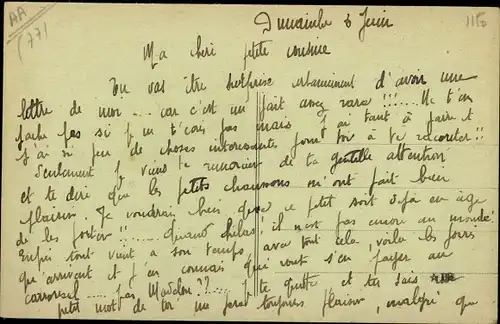 AA
(77)
1180
Dimanche 6 Juin
Ma chère petite cousine
Tu vas être surprise certainement d'avoir une
lettre de moi ... car c'est un fait assez rare !!! ... Ne t'en
fache pas si je ne t'écris pas mais j'ai tant à faire et
j'ai si peu de choses intéressantes pour toi à te raconter !!
Seulement je viens te remercier de ta gentille attention
et te dire que les petits chaussons m'ont fait bien
plaisir. Je voudrais bien que ce petit soit déjà en âge
de les porter !! ...... Quand hélas il n'est pas encore au monde !
Enfin tout vient à son temps, avec tout cela, voilà les jours
qu'arrivent et j'en connais qui vont s'en payer au
carrousel ..... pas Madelon ?? .... Je te quitte et tu sais
petit mot de toi me ferait toujours plaisir, malgré que